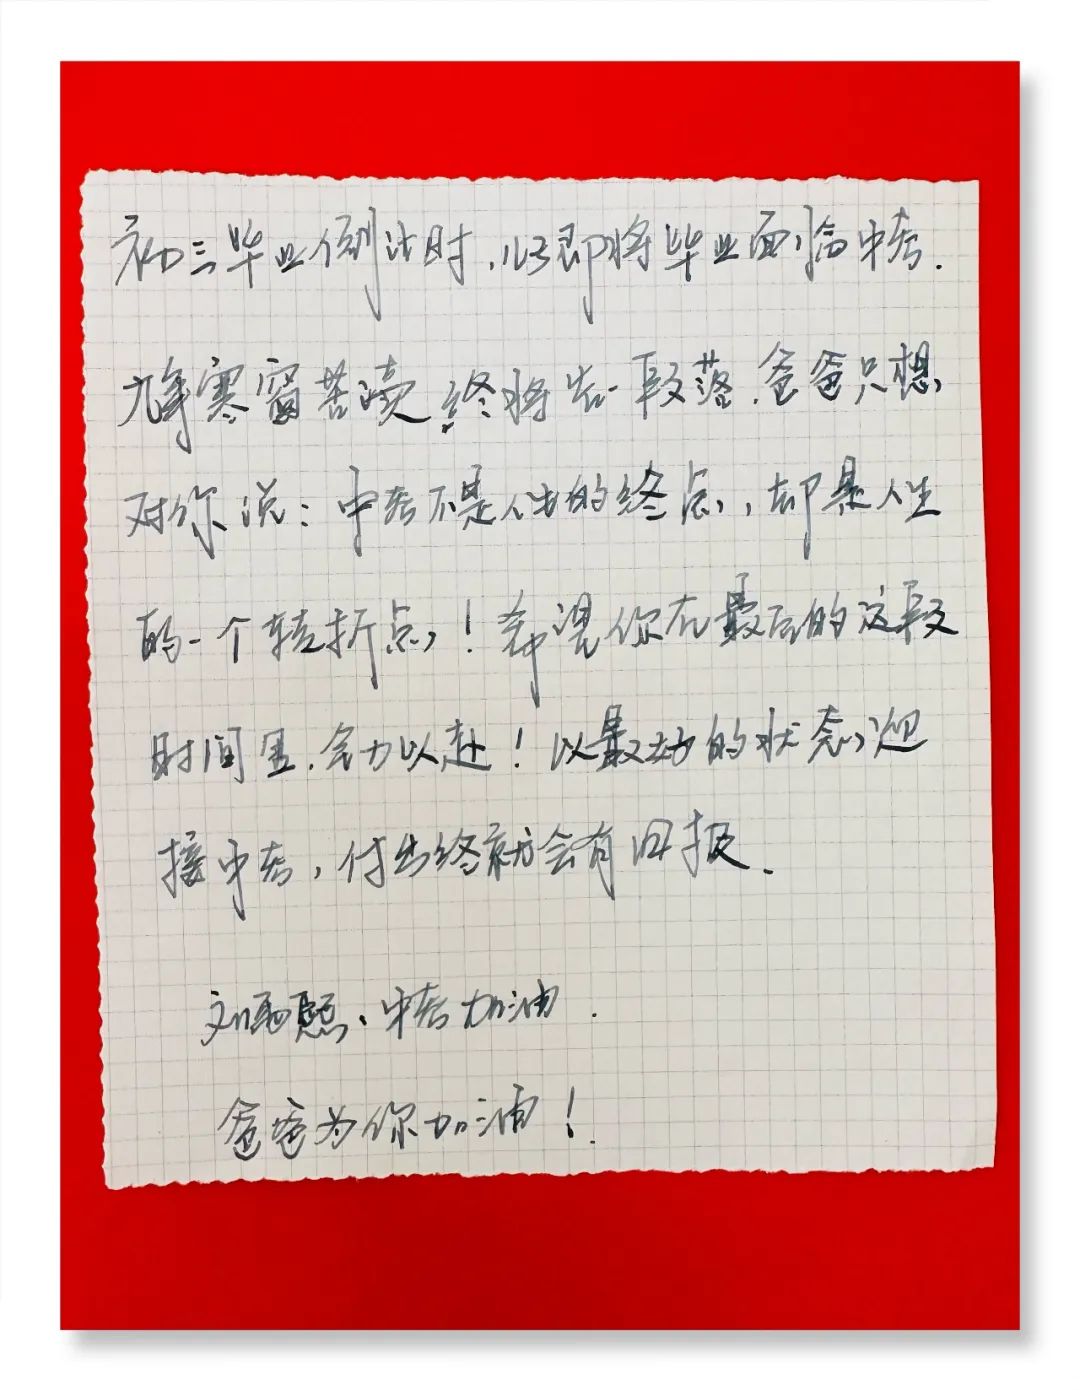 初三毕业倒计时,你即将毕业面临中考.
九年寒窗苦读,终将告一段落.爸爸只想
对你说:中考不是人生的终点,却是人生
的一个转折点!希望你在最后的这段
时间里.全力以赴!以最好的状态迎
接中考,付出终就会有回报.
刘熙、中考加油.
爸爸为你加油!